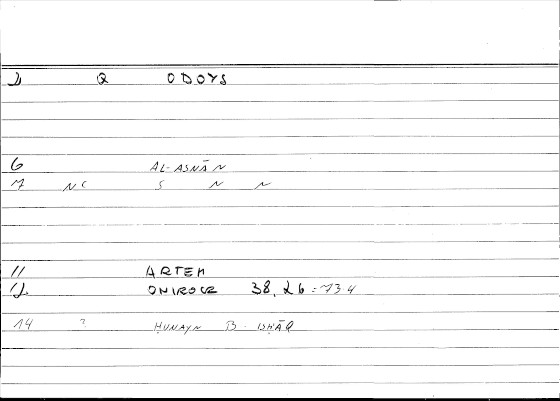 1) Q ODOYS
6 AL-ASNĀN
7 NC S N N
11 ARTEM
12 ONIROCR 38,26 = 734
14 ? ḤUNAYN B. ISḤĀQ